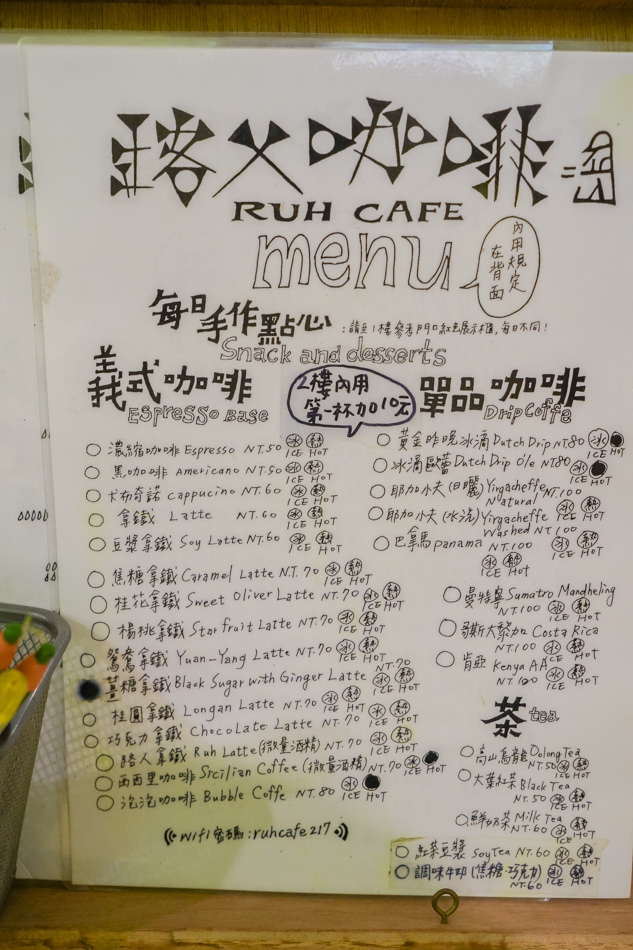 咖啡
RUH CAFE
menu
內用規定
在背面
每日手作點心
Snack and desserts
義式咖啡
Espresso Base
濃縮咖啡 Espresso NT.50 冰 熱 ICE HOT
黑咖啡 Americano NT.50 冰 熱 ICE HOT
卡布奇諾 Cappucino NT.60 冰 熱 ICE HOT
拿鐵 Latte NT.60 冰 熱 ICE HOT
豆漿拿鐵 Soy Latte NT.60 冰 熱 ICE HOT
焦糖拿鐵 Caramel Latte N.T. 70 冰 熱 ICE HOT
桂花拿鐵 Sweet Oliver Latte NT.70 冰 熱 ICE HOT
楊桃拿鐵 Star fruit Latte NT.70 冰 熱 ICE HOT
鴛鴦拿鐵 Yuan-Yang Latte NT.70 冰 熱 ICE HOT
薑糖拿鐵 Black Sugar with Ginger Latte NT.70 冰 熱 ICE HOT
桂圓拿鐵 Longan Latte NT.70 冰 熱 ICE HOT
巧克力拿鐵 Chocolate Latte NT.70 冰 熱 ICE HOT
路人拿鐵 Ruh Latte (微量酒精) NT.70 冰 熱 ICE HOT
西西里咖啡 Sicilian Coffee (微量酒精) NT.70 冰 ICE HOT
泡泡咖啡 Bubble Coffe NT.80 冰 ICE HOT
wifi密碼:ruhcafe217
2樓內用
第一杯加10元
單品咖啡
Drip Coffe
黃金昨晚冰滴 Dutch Drip NT80 冰 ICE HOT
冰滴歐蕾 Dutch Drip O'le NT80 冰 ICE HOT
耶加小夫(日曬) Yirgacheffe Natural NT.100
耶加小夫(水洗) Yirgacheffe Washed NT.100 冰 熱 ICE HOT
巴拿馬 panama NT.100 冰 熱 ICE HOT
曼特寧 Sumatro Mandheling NT100 冰 熱 ICE HOT
哥斯大黎加 Costa Rica NT.100 冰 熱 ICE HOT
肯亞 Kenya AA NT.100 冰 熱 ICE HOT
茶 tea
高山烏龍 Oolong Tea NT.50 冰 熱 ICE HOT
大葉紅茶 Black Tea NT.50 冰 熱 ICE HOT
鮮奶茶 Milk Tea NT.60 冰 熱 ICE HOT
紅茶豆漿 Soy Tea NT.60 冰 熱 ICE HOT
調味牛奶 (焦糖·巧克力) NT.60 冰 熱 ICE HOT